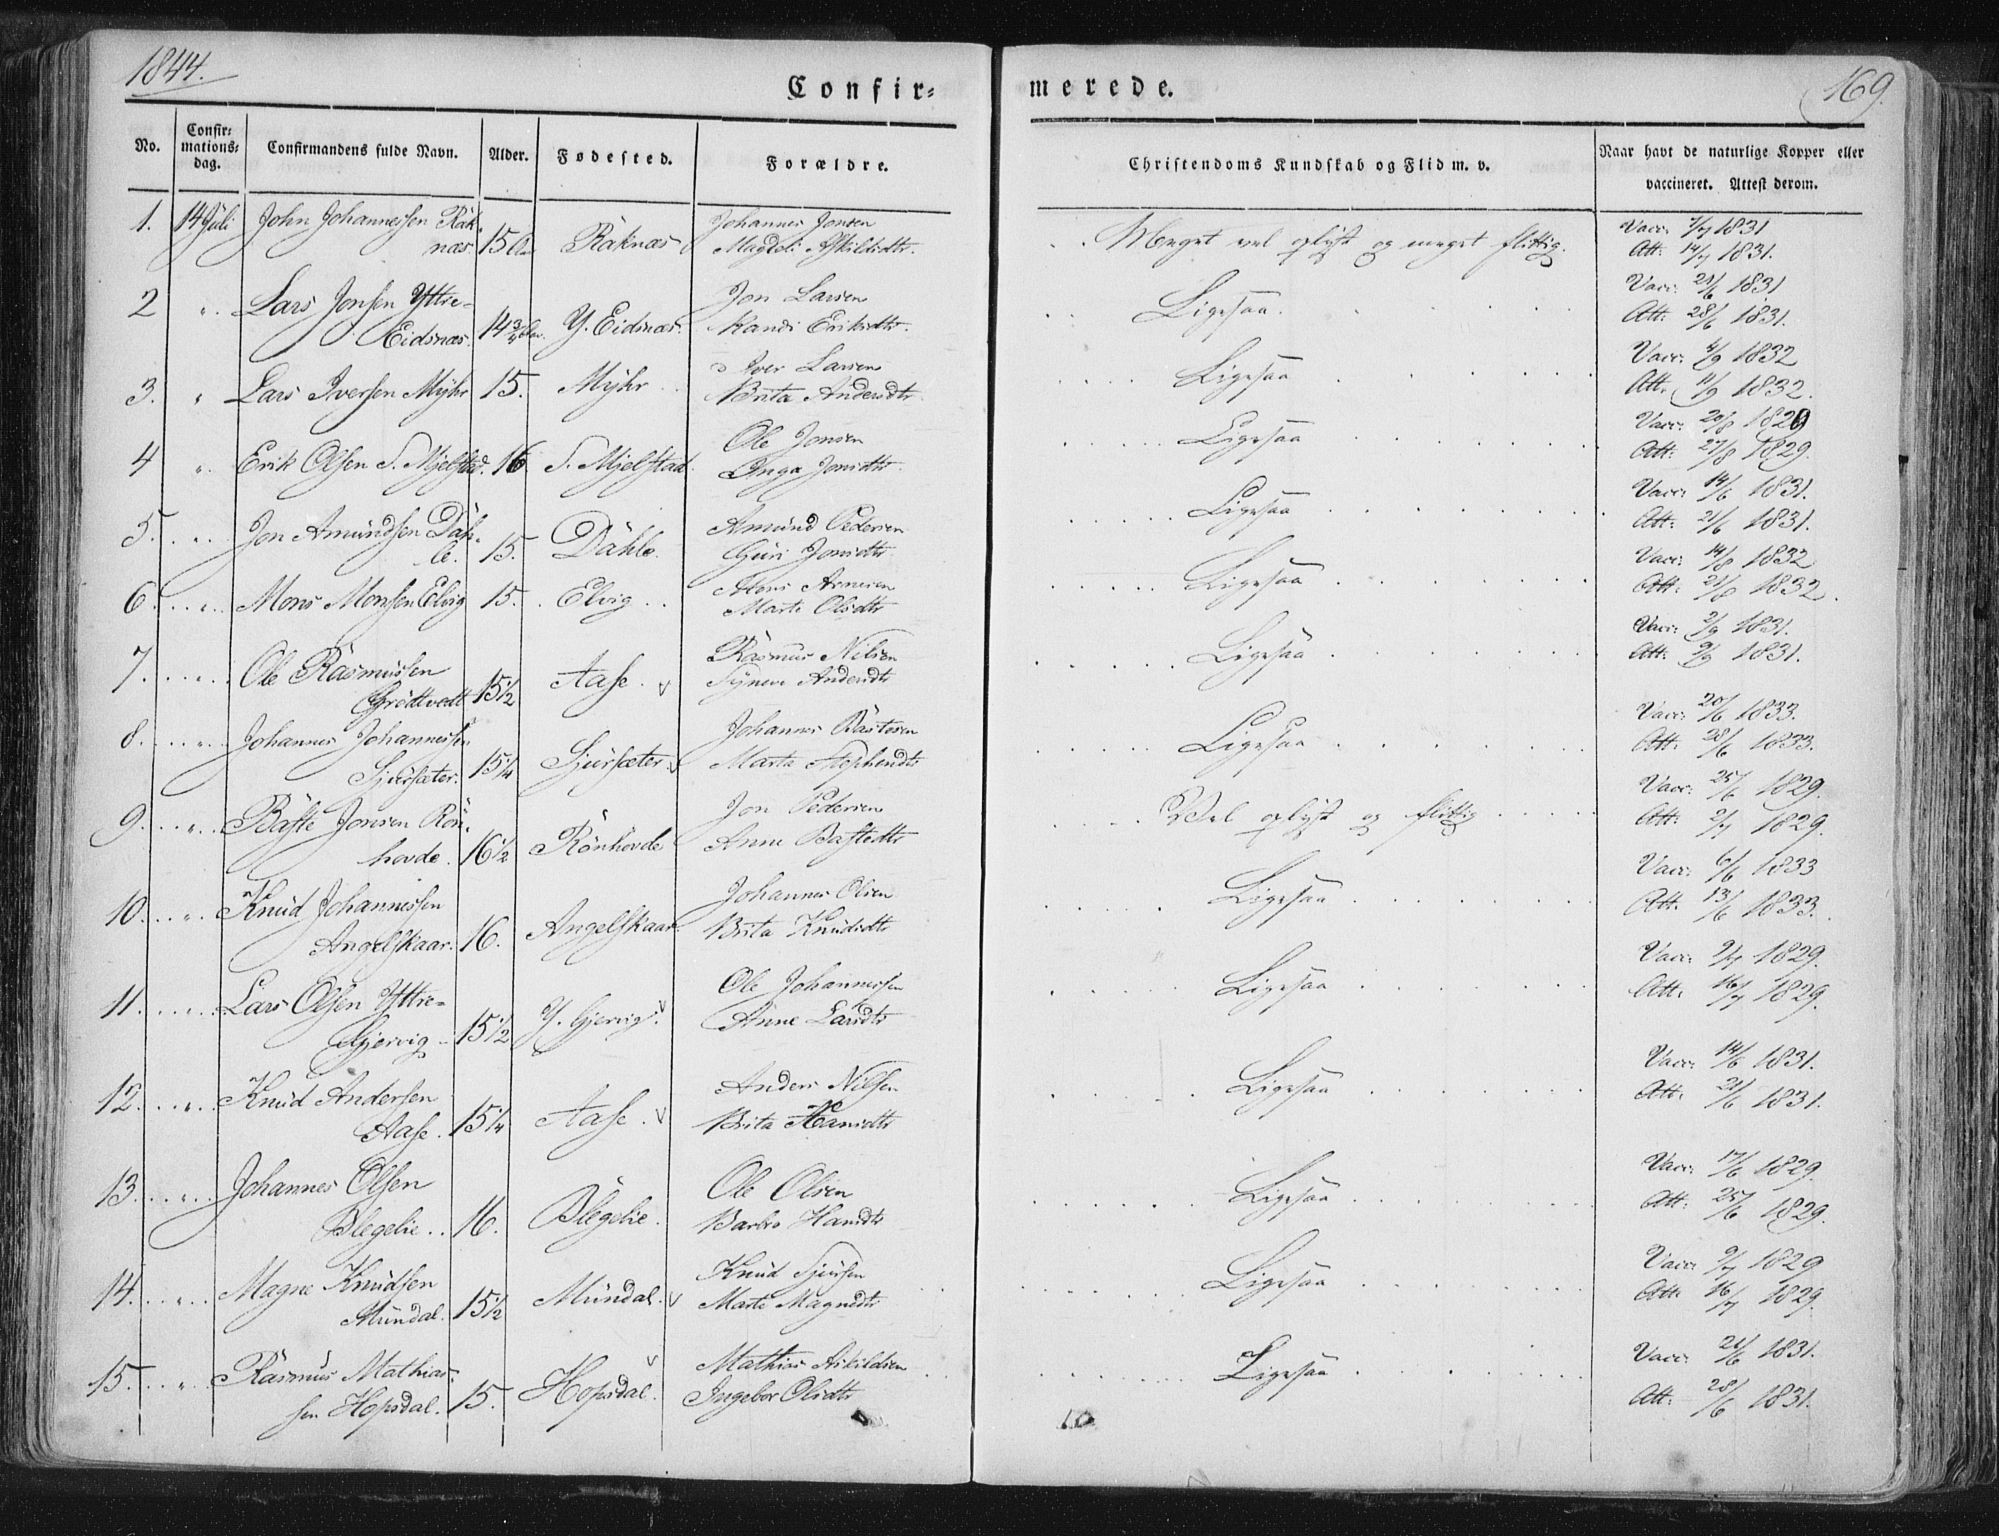 1844.
Confir=
merede.
169.
No.
Confir=
mations=
dag.
Confirmandens fulde Navn.
Alder.
Fødested.
Forældre.
Christendoms Kundskab og Flid m. v.
Naar havt de naturlige Kopper eller
vaccineret. Attest derom.
1. 14 Juli John Johannessen Rök-
næs. 15 Röknæs Johannes Jonsen
Magdeli Askildsdtr. Meget vel oplyst og meget flittig. Vacc: 7/7 1831
Att: 14/7 1831.
2 " Lars Jonsen Yttre-
Eidsnæs. 14 3/4 Y. Eidsnæs. Jon Larsen
Randi Eriksdtr. Ligesaa. Vacc: 21/6 1831
Att: 28/6 1831.
3. " Lars Iversen Myhr 15. Myhr Iver Larsen
Brita Andersdtr. Ligesaa Vacc: 4/9 1832
Att. 11/9 1832.
4 " Erik Olsen S. Mjelstad. 16 S. Mjelstad Ole Jonsen
Inga Jonsdtr. Ligesaa Vacc: 20/8 1829
Att: 27/8 1829.
5. " Jon Amundsen Däh-
le. 15. Dähle. Amund Pedersen
Guri Jonsdtr Ligesaa Vacc: 14/6 1831.
Att: 21/6 1831.
6. " Mons Monsen Elvig 15. Elvig Mons Arnesen
Marte Olsdtr Ligesaa Vacc: 14/8 1832
Att: 21/8 1832.
7. " Ole Rasmussen
Grödtvedt 15 1/2 Aase. v Rasmus Nilsen
Synneve Andersdtr Ligesaa Vacc: 2/9 1831.
Att: 9/9 1831.
8. " Johannes Johannessen
Sjursæter. 15 1/4 Sjursæter. v Johannes Bastesen
Marta Stephensdtr Ligesaa Vacc: 20/6 1833.
Att: 28/6 1833.
9. " Baste Jonsen Rön-
hovde. 16 1/2 Rönhovde Jon Pedersen
Anne Bastedtr Vel oplyst og flittig Vacc: 25/6 1829.
Att: 2/7 1829.
10. " Knud Johannessen
Angelskaar. 16. Angelskaar Johannes Olsen
Brita Knudsdtr Ligesaa Vacc: 6/6 1833
Att. 13/6 1833.
11. " Lars Olsen Yttre-
Gjervig 15 1/2 Y. Gjervig. v Ole Johannessen
Anne Larsdtr Ligesaa Vacc: 9/7 1829.
Att. 16/7 1829.
12. " Knud Andersen
Aase. 15 1/4 Aase. v Anders Nilsen
Brita Hansdtr Ligesaa Vacc: 14/6 1831.
Att. 21/6 1831.
13. " Johannes Olsen
Blegelie. 16. Blegelie. Ole Olsen
Barbro Hansdtr Ligesaa Vacc: 17/6 1829.
Att: 25/6 1829.
14. " Magne Knudsen
Mundal. 15 1/2 Mundal. v Knud Sjursen
Marte Magnedtr Ligesaa Vacc: 9/7 1829
Att: 16/7 1829.
15. " Rasmus Mathias-
sen Hopsdal. 15. Hopsdal. v Mathias Askildsen
Ingebor Olsdtr Ligesaa Vacc: 21/6 1831.
Att: 28/6 1831.